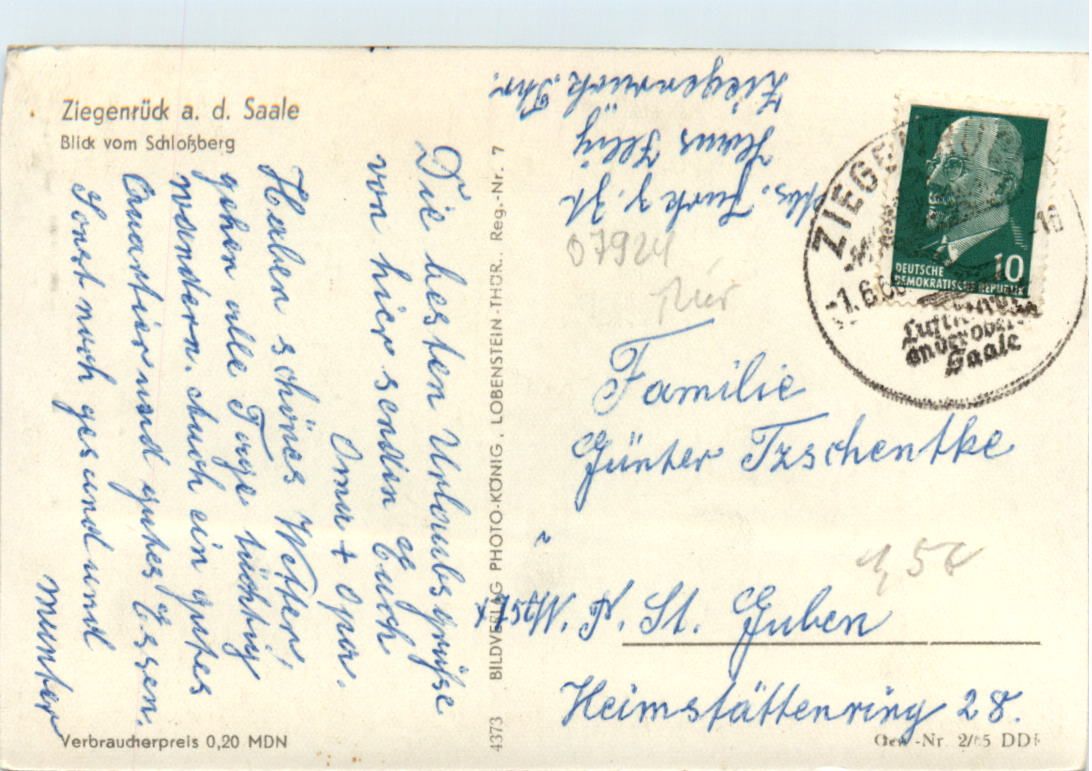 Ziegenrück a. d. Saale
Blick vom Schloßberg
Die besten Urlaubsgrüße
von hier senden Euch
Oma + Opa.
Haben schönes Wetter,
gehen alle Tage tüchtig
wandern. Auch ein gutes
Quartier und gutes Essen.
Sonst noch gesund und
munter
Verbraucherpreis 0,20 MDN
4373 BILDVERLAG PHOTO-KÖNIG, LOBENSTEIN-THÜR., Reg.-Nr. 7
Abs. z. Zt.
Haus
Ziegenrück Thür.
07924
ZIEGENRÜCK
-1.6.66
an der oberen
Saale
DEUTSCHE
DEMOKRATISCHE REPUBLIK
10
Familie
Günter Tzschentke
W. P. St. Guben
Heimstättenring 28.
Gen-Nr. 2/65 DDR